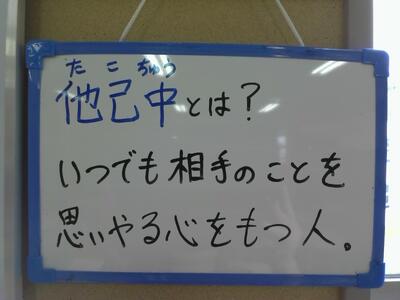 たこちゅう
他己中とは？
いつでも相手のことを
思いやる心をもつ人。